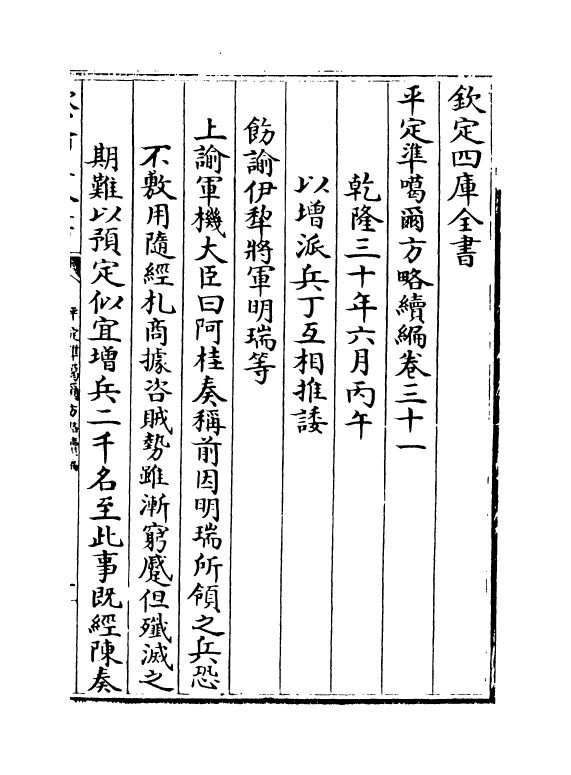 欽定四庫全書
平定準噶爾方略續編卷三十一
乾隆三十年六月丙午
以増派兵丁互相推諉
飭諭伊犂將軍明瑞等
上諭軍機大臣曰阿桂奏稱前因明瑞所領之兵恐
不敷用隨經札商據咨賊勢雖漸窮蹙但殲滅之
期難以預定似宜増兵二千名至此事既經陳奏
平定準噶爾方略續編